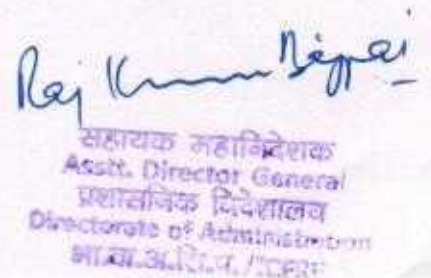 Raj Kumar Bajpai
सहायक महानिदेशक
Asstt. Director General
प्रशासनिक निदेशालय
Directorate of Administration
भा.वा.अ.शि.प. / ICFRE